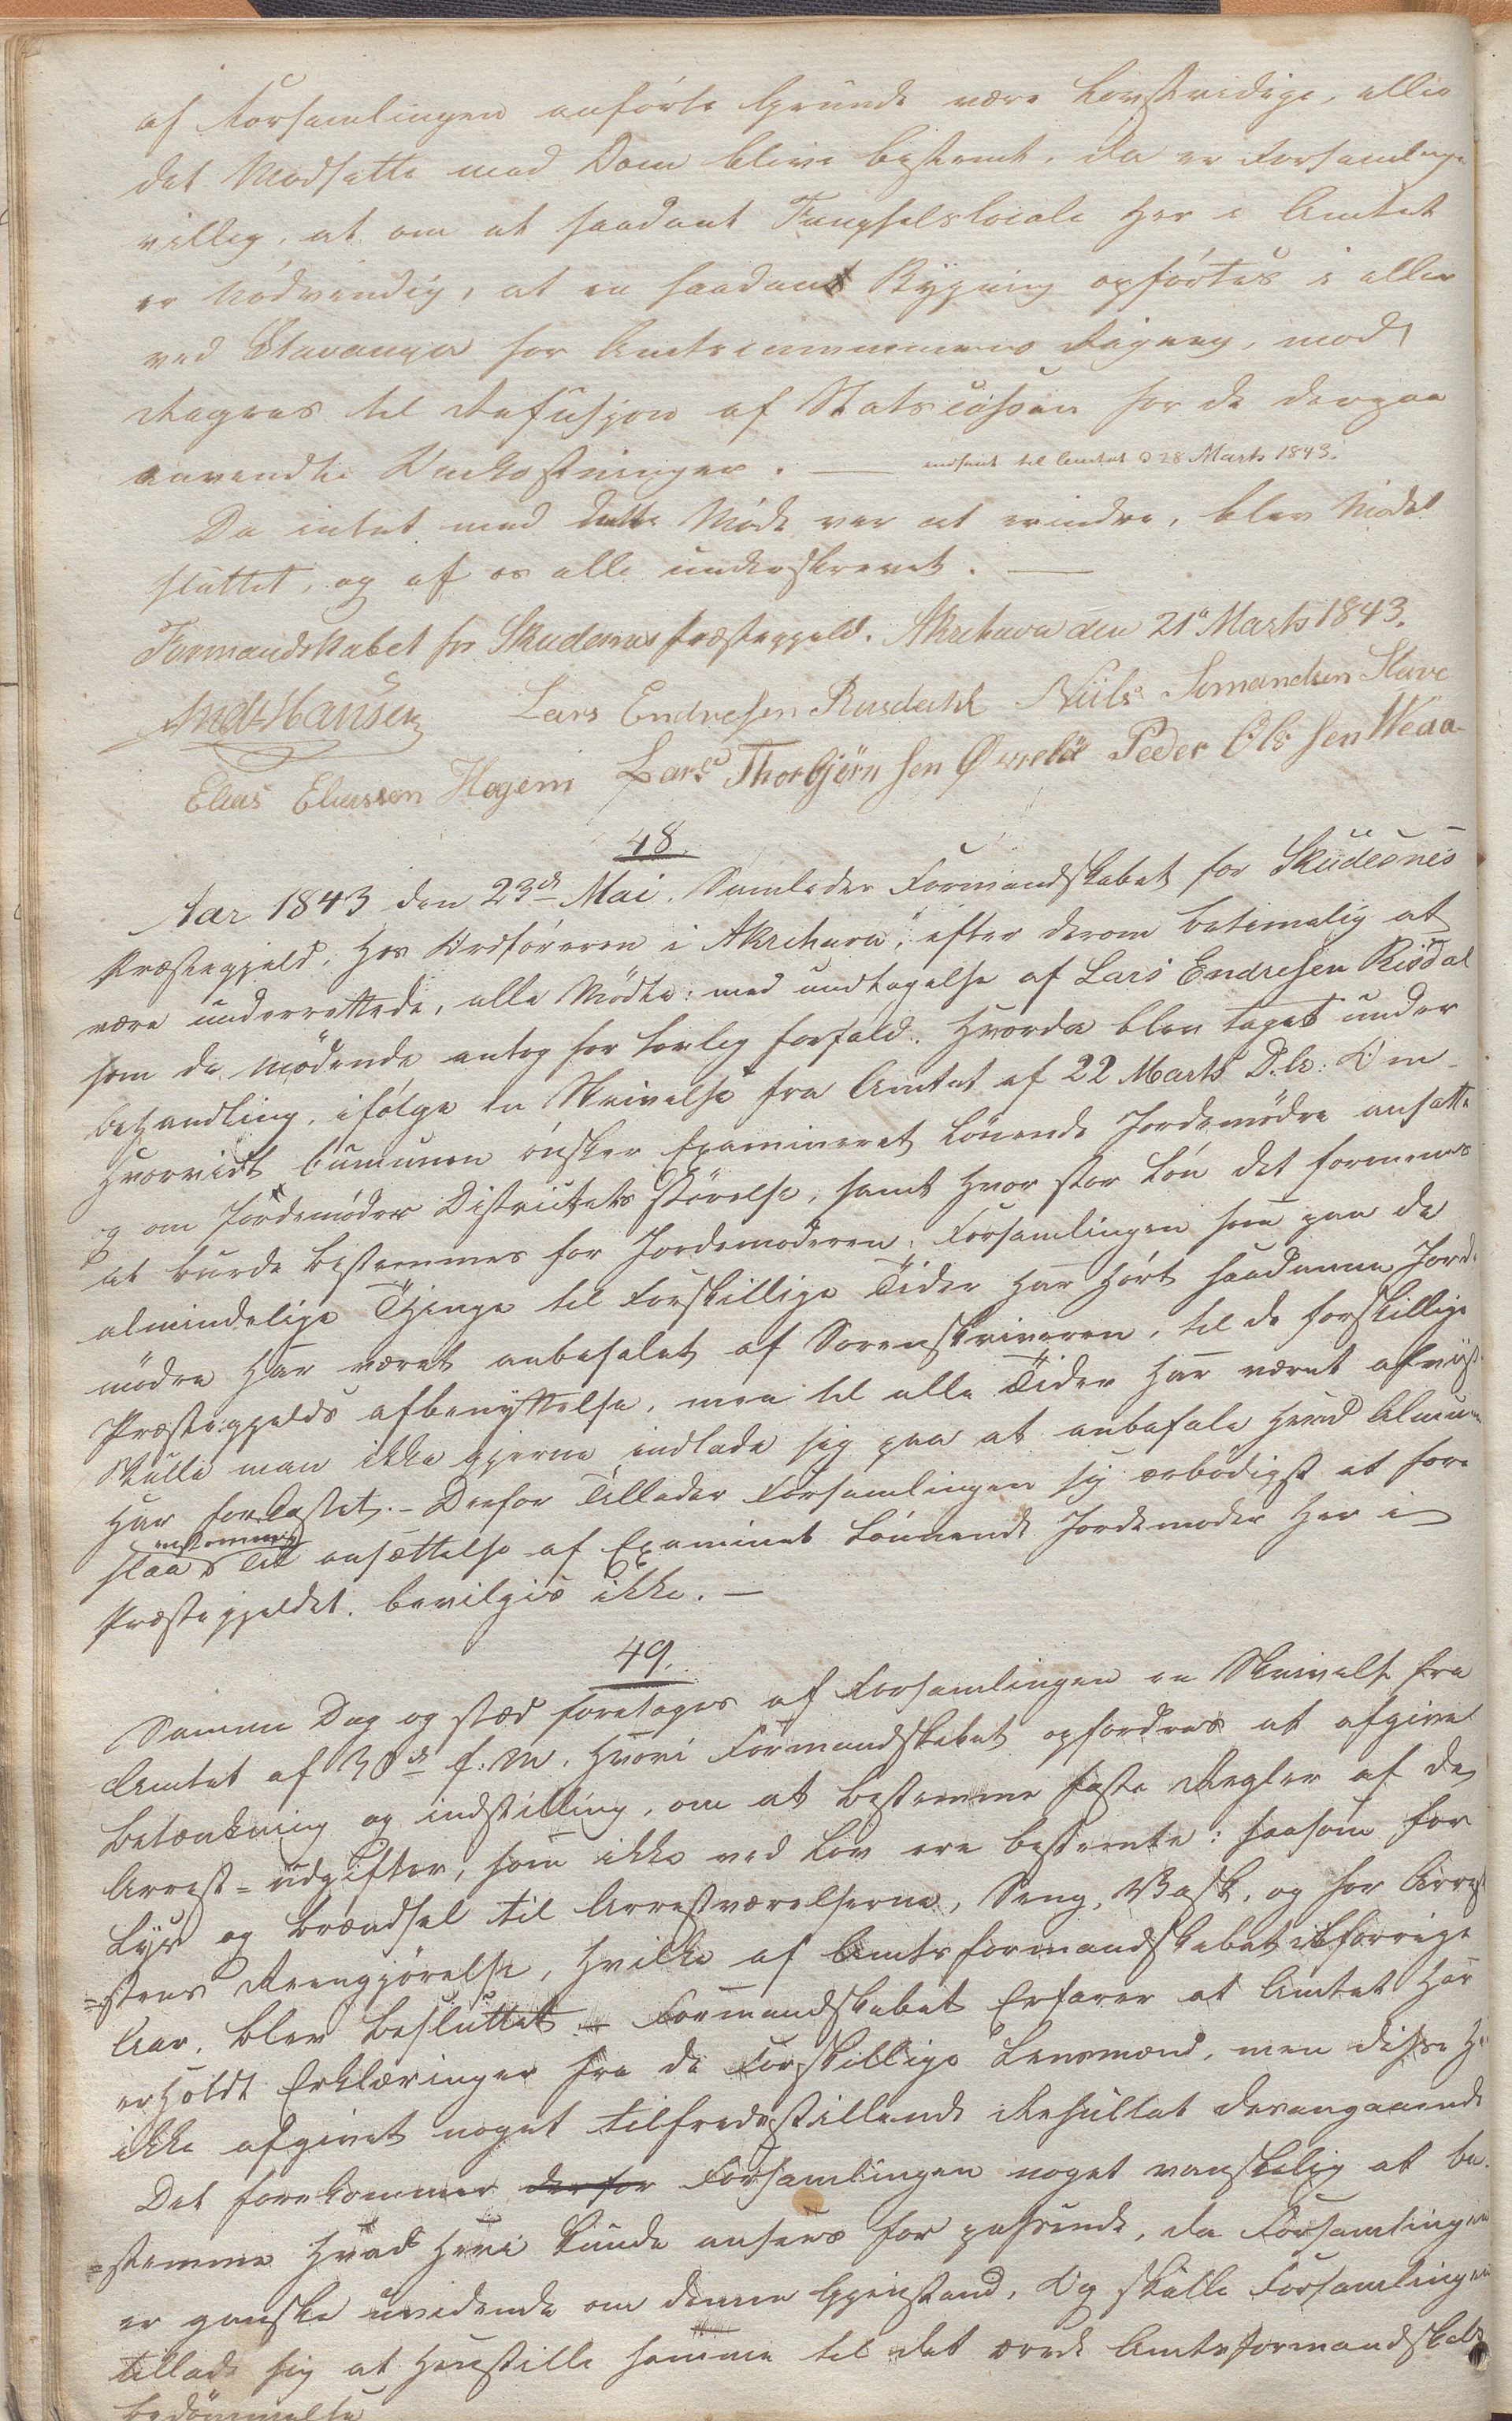 af Forsamlingen anførte Grunde være Lovstridige, eller
det Modsatte med Dom blive bestemt, da er Forsamlingen
villig, at om et saadant Fængselslocale her i Amtet
er nødvendig, at en saadant Bygning opførtes i eller
ved Stavanger for Amtscommunens Regning, mod
Regres til Refusjon af Statscassen for de derpaa
anvendte Omkostninger. — indsent til Amtet d 28 Marts 1843.
Da intet med dette Møde var at erindre, blev Mødet
sluttet, og af os alle underskrevet. —
Formandskabet for Skudenes Præstegjeld. Akrehavn den 21de Marts 1843.
Andr Hansen Lars Endresen Risdahl Niils Simondsen Stave
Elias Eliassen Hagem Lars Thorbjørnsen Øvrebø Peder Olssen Weaa
48.
Aar 1843 den 23de Mai. Samledes Formandskabet for Skudesnes
Præstegjeld, hos Ordføreren i Akrehavn, efter derom betimelig at
være underrettede, alle Mødte: med undtagelse af Lars Endresen Risdal
som de mødende antog for lovlig forfald. Hvorda blev taget under
behandling, ifølge en Skrivelse fra Amtet af 22 Marts D.A: Om
hvorvidt Cumunen ønsker Examineret Lønnende Jordemødre ansatte
og om Jordemoder Districtets Størelse, samt hvor stor Løn det formenes
at burde bestemmes for Jordemoderen, Forsamlingen som paa de
almindelige Thinge til Forskillige Tider har hørt saadanne Jorde
mødre har været anbefalet af Sorenskriveren, til de forskillige
Præstegjelds afbenyttelse, men til alle Tider har været afviist.
Skulle man ikke gjerne indlade sig paa at anbefale hvad Almuen
har forkastet. - Derfor Tillader Forsamlingen sig ærbødigst at fore
slaa til ansættelse af Examinet Lønnende Jordemoder her i
Præstegjeldet. bevilges ikke. —
49.
Samme Dag og sted foretoges af Forsamlingen en Skrivelse fra
Amtet af 30de f: M. hvori Formandskabet opfordres at afgive
Betænkning og indstilling, om at bestemme faste Regler af de
Arrest=udgifter, som ikke ved Lov ere bestemte: saasom for
Lys og Brændsel til Arrestværelserne, Seng, Vask, og for Arre
=stens Reengjørelse, hvilke af Amtsformandskabet i forrige
Aar, blev besluttet - Formandskabet Erfarer at Amtet har
erholdt Erklæringer fra de Forskillige Lensmænd, men disse har
ikke afgivet noget tilfredsstillende Resultat derangaaende
Det forekommer derfor Forsamlingen noget vanskelig at be
=stemme hvad heri kunde ansees for passende, da Forsamlingen
er ganske uvidende om denne Gjenstand, Og skulle Forsamlingen
tillade sig at henstille samme til det ærede Amtsformandskabs
bedømmelse